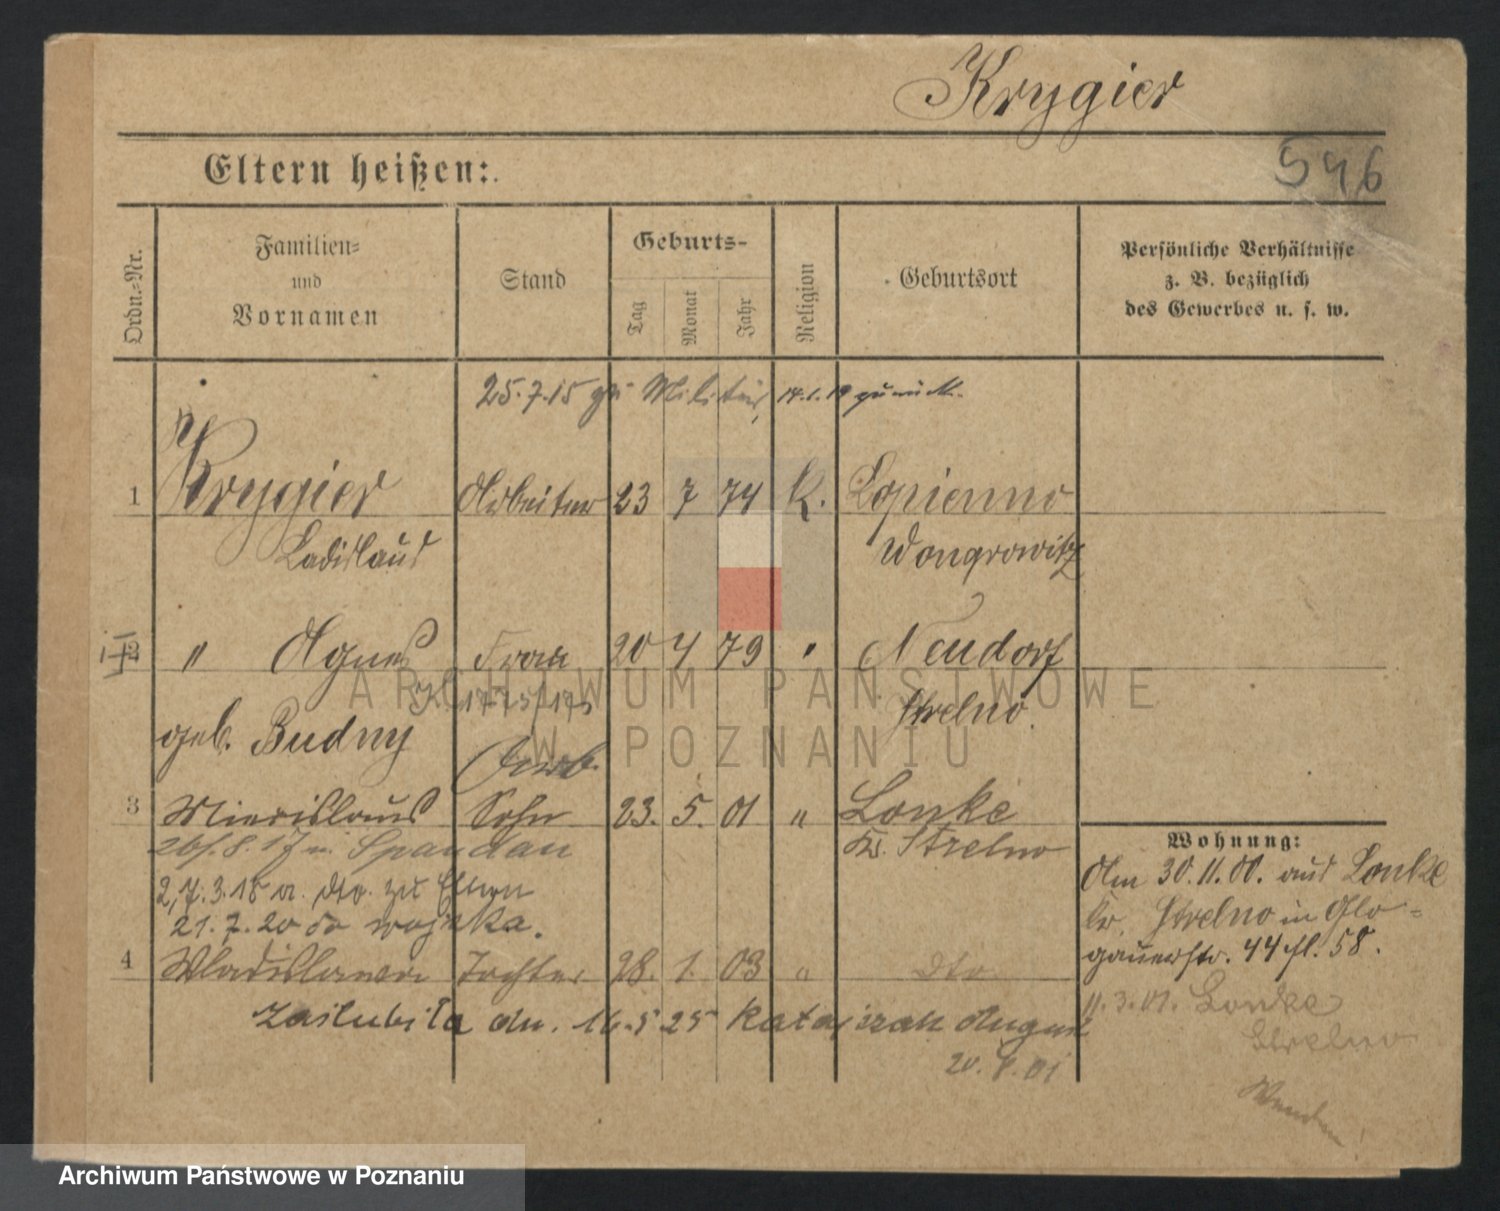 Krygier
546
Eltern heißen:
Ordn.-Nr.
Familien-
und
Vornamen
Stand
Geburts-
Tag
Monat
Jahr
Religion
Geburtsort
Persönliche Verhältnisse
z. B. bezüglich
des Gewerbes u. s. w.
25.7.15 zu Militär, 14.1.19 zurück.
1 Krygier Arbeiter 23 7 74 K. Lopienno
Ladislaus Wongrowitz
2 " Agnes Frau 20 4 79 " Neudorf
1775/175 Strelno.
geb. Budny
3 Miecislaus Sohn 23. 5. 01 " Lonke
Kr. Strelno
26/.8. 17 n. Spandau
2,7.3.18 a. dto. zu Eltern
21.7.20 do wojska.
4 Wladislawa Tochter 28. 1. 03 " dto
zaślubiła dn. 16.5 25 Katajczak August
20.8.01
Wohnung:
Am 30.11.00. aus Lonke
Kr. Strelno in Glo-
gauerstr. 44 fl. 58.
11.3.01. Lonke
Strelno
Wenden!
ARCHIWUM PAŃSTWOWE
W POZNANIU
Archiwum Państwowe w Poznaniu